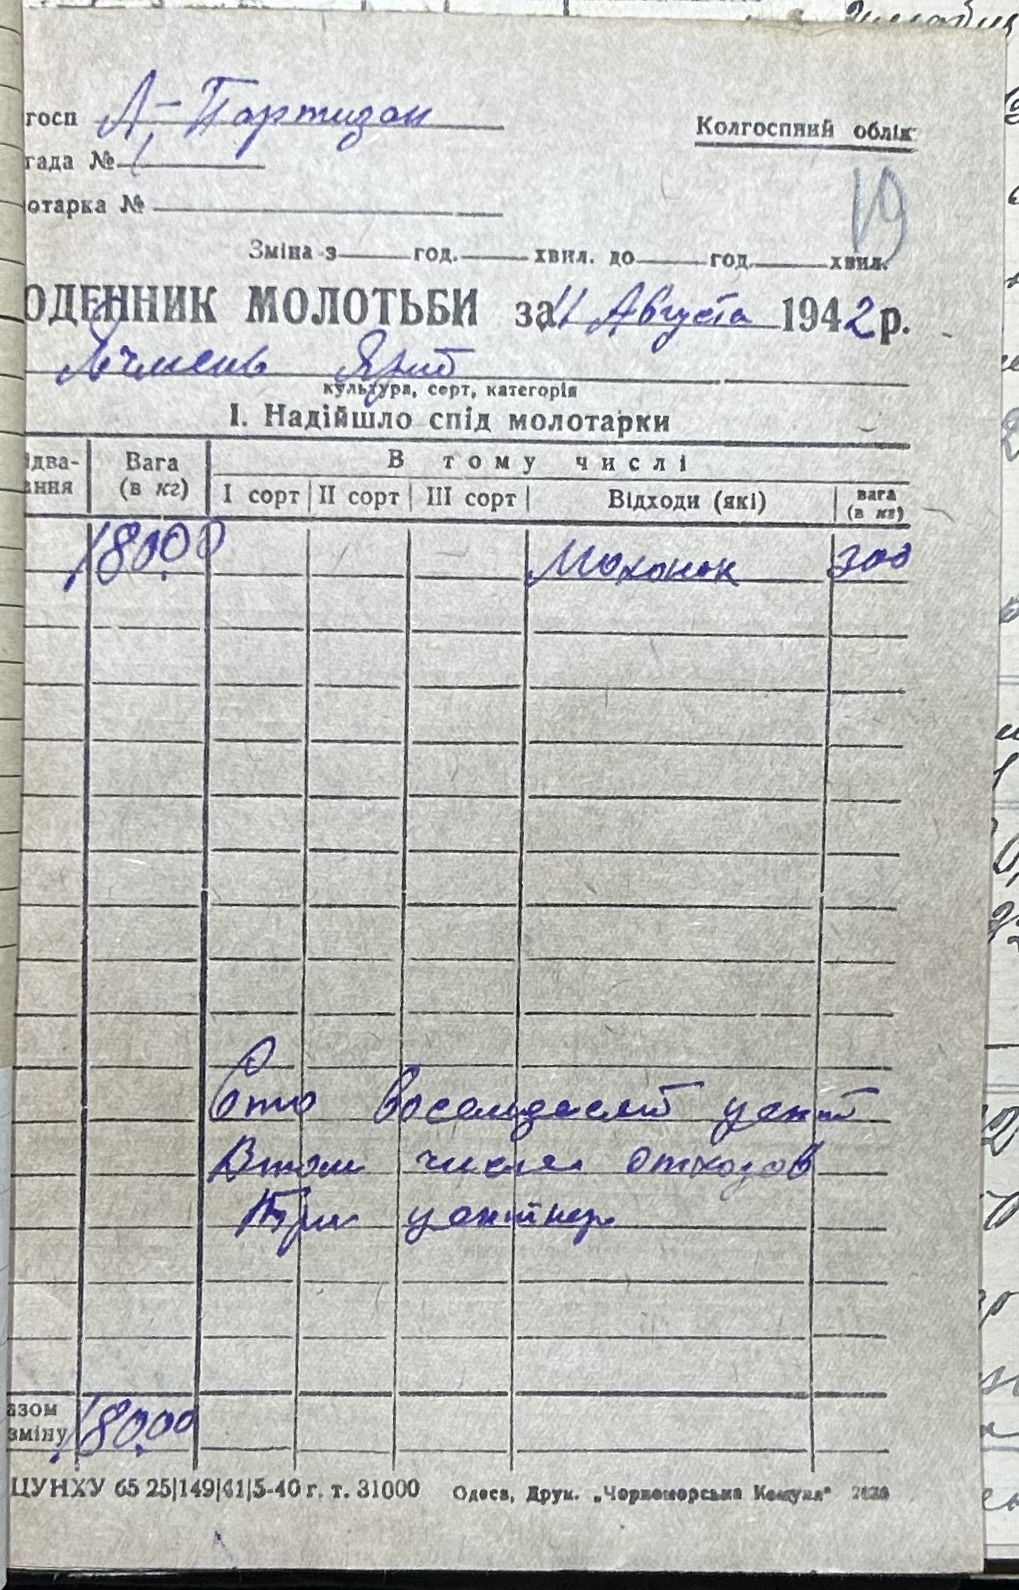 госп Л-Партизан
Колгоспний облік
гада № 1
19
отарка №
Зміна з год. хвил. до год. хвил.
ОДЕННИК МОЛОТЬБИ за 11 Августа 1942 р.
Ячмень Яний
культура, сорт, категорія
І. Надійшло спід молотарки
ідва-ання Вага (в кг) В тому числі
І сорт ІІ сорт ІІІ сорт Відходи (які) вага (в кг)
18000 Мохонок 300
Сто восемдесят цент
В том числе отходов
Три центнер
азом
зміну 18000
ЦУНХУ 65 25|149|41|5-40 г. т. 31000 Одеса, Друк. „Чорноморська Комуна"